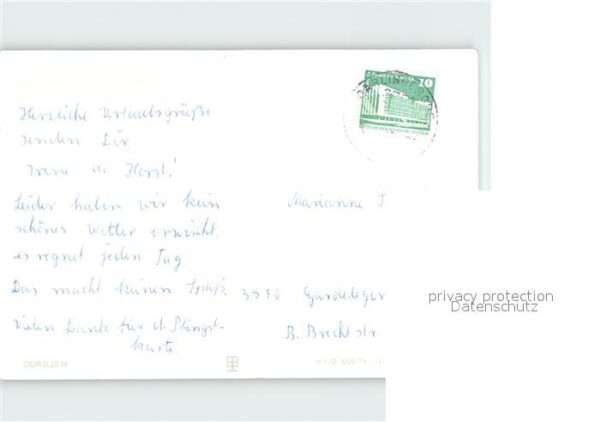 Herzliche Urlaubsgrüße
senden Dir
Irene u. Horst!
Leider haben wir kein
schönes Wetter erwischt.
es regnet jeden Tag
Das macht keinen Spaß.
Vielen Dank für d. Pfingst-
karte.
Marianne
3570 Gardelegen
B. Brecht str.
privacy protection
Datenschutz
DDR 0,25 M